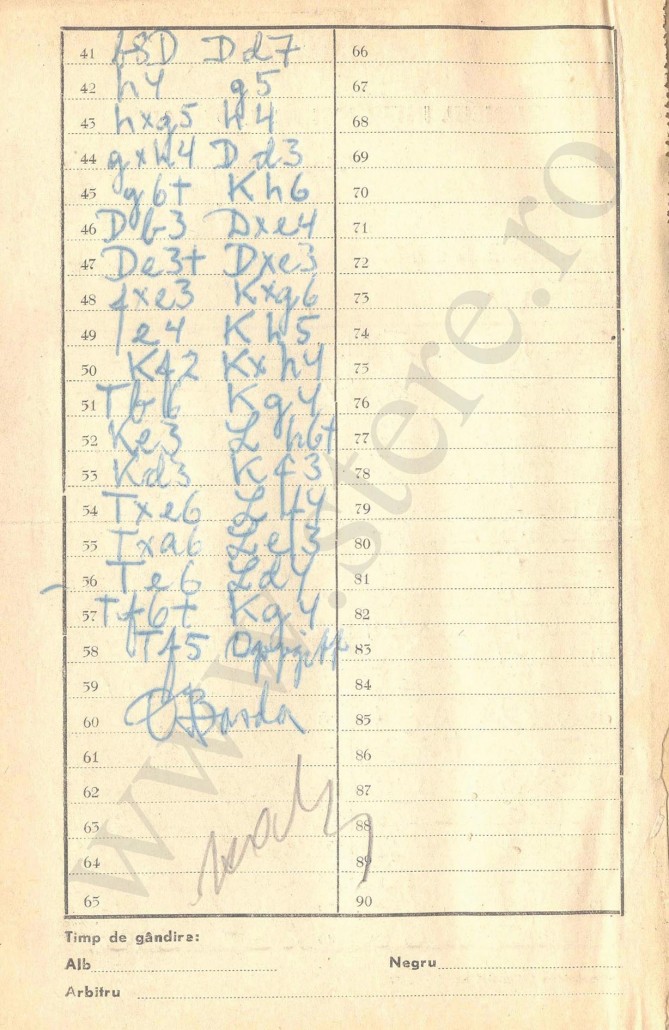 41 b8D Dd7 66
42 h4 g5 67
43 hxg5 h4 68
44 gxh4 Dd3 69
45 g6+ Kh6 70
46 Db3 Dxe4 71
47 De3+ Dxe3 72
48 fxe3 Kxg6 73
49 e4 Kh5 74
50 Kf2 Kxh4 75
51 Tb6 Kg4 76
52 Ke3 Lh6+ 77
53 Kd3 Kf3 78
54 Txe6 Lf4 79
55 Txa6 Le3 80
56 Te6 Ld4 81
57 Tf6+ Kg4 82
58 Tf5 Oppgitt 83
59 84
60 OBarda 85
61 86
62 87
63 88
64 89
65 90
Timp de gândire:
Alb Negru
Arbitru
www.stere.ro